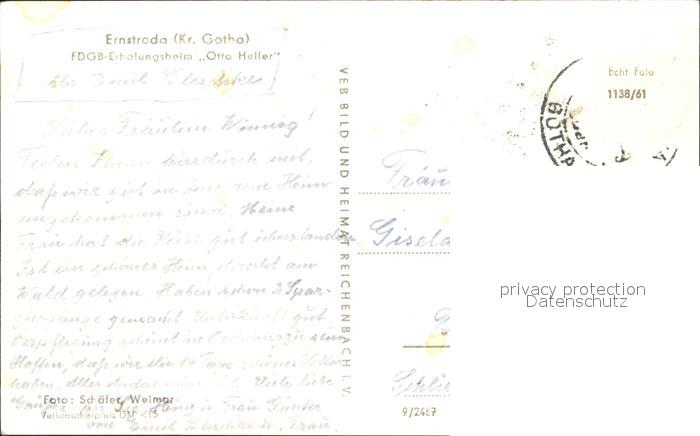 Ernstroda (Kr. Gotha)
FDGB-Erholungsheim „Otto Heller"
Abs. Emil
Liebes Fräulein Winnig!
Teilen Ihnen hierdurch mit,
daß wir gut in unserem Heim
angekommen sind. Meine
Frau hat die Reise gut überstanden
Ist ein schönes Heim, direkt am
Wald gelegen. Haben schon 2 Spazier-
gänge gemacht. Unterkunft gut
Verpflegung scheint in Ordnung zu sein
Hoffen, daß wir die 14 Tage schönes Wetter
haben. Viele liebe
Grüße an Sie u. Frau Günter
von Emil u. Frau.
Foto: Schäfer, Weimar
Verbraucherpreis DM -,15
VEB BILD UND HEIMAT REICHENBACH I. V.
Echt Foto
1138/61
GOTHA
Fräu
Gisela
privacy protection
Datenschutz
9/2467